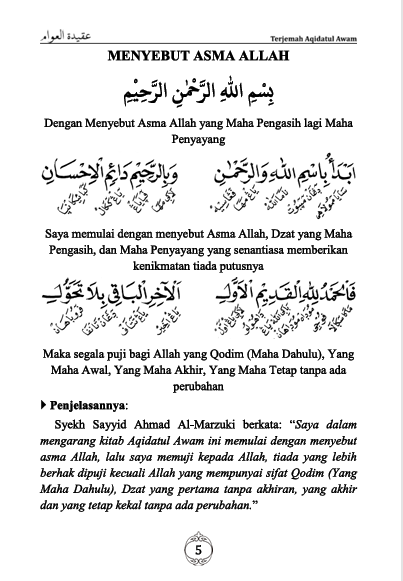 عقيدة العوام
Terjemah Aqidatul Awam
MENYEBUT ASMA ALLAH
بِسْمِ اللهِ الرَّحْمٰنِ الرَّحِيْمِ
Dengan Menyebut Asma Allah yang Maha Pengasih lagi Maha
Penyayang
اَبْدَأُ بِاسْمِ اللهِ وَالرَّحْمٰنِ وَبِالرَّحِيْمِ دَائِمِ الْاِحْسَانِ
Saya memulai dengan menyebut Asma Allah, Dzat yang Maha
Pengasih, dan Maha Penyayang yang senantiasa memberikan
kenikmatan tiada putusnya
فَالْحَمْدُ لِلّٰهِ الْقَدِيْمِ الْاَوَّلِ اَلْآخِرِ الْبَاقِيْ بِلَا تَحَوُّلِ
Maka segala puji bagi Allah yang Qodim (Maha Dahulu), Yang
Maha Awal, Yang Maha Akhir, Yang Maha Tetap tanpa ada
perubahan
Penjelasannya:
Syekh Sayyid Ahmad Al-Marzuki berkata: “Saya dalam
mengarang kitab Aqidatul Awam ini memulai dengan menyebut
asma Allah, lalu saya memuji kepada Allah, tiada yang lebih
berhak dipuji kecuali Allah yang mempunyai sifat Qodim (Yang
Maha Dahulu), Dzat yang pertama tanpa akhiran, yang akhir
dan yang tetap kekal tanpa ada perubahan.”
5